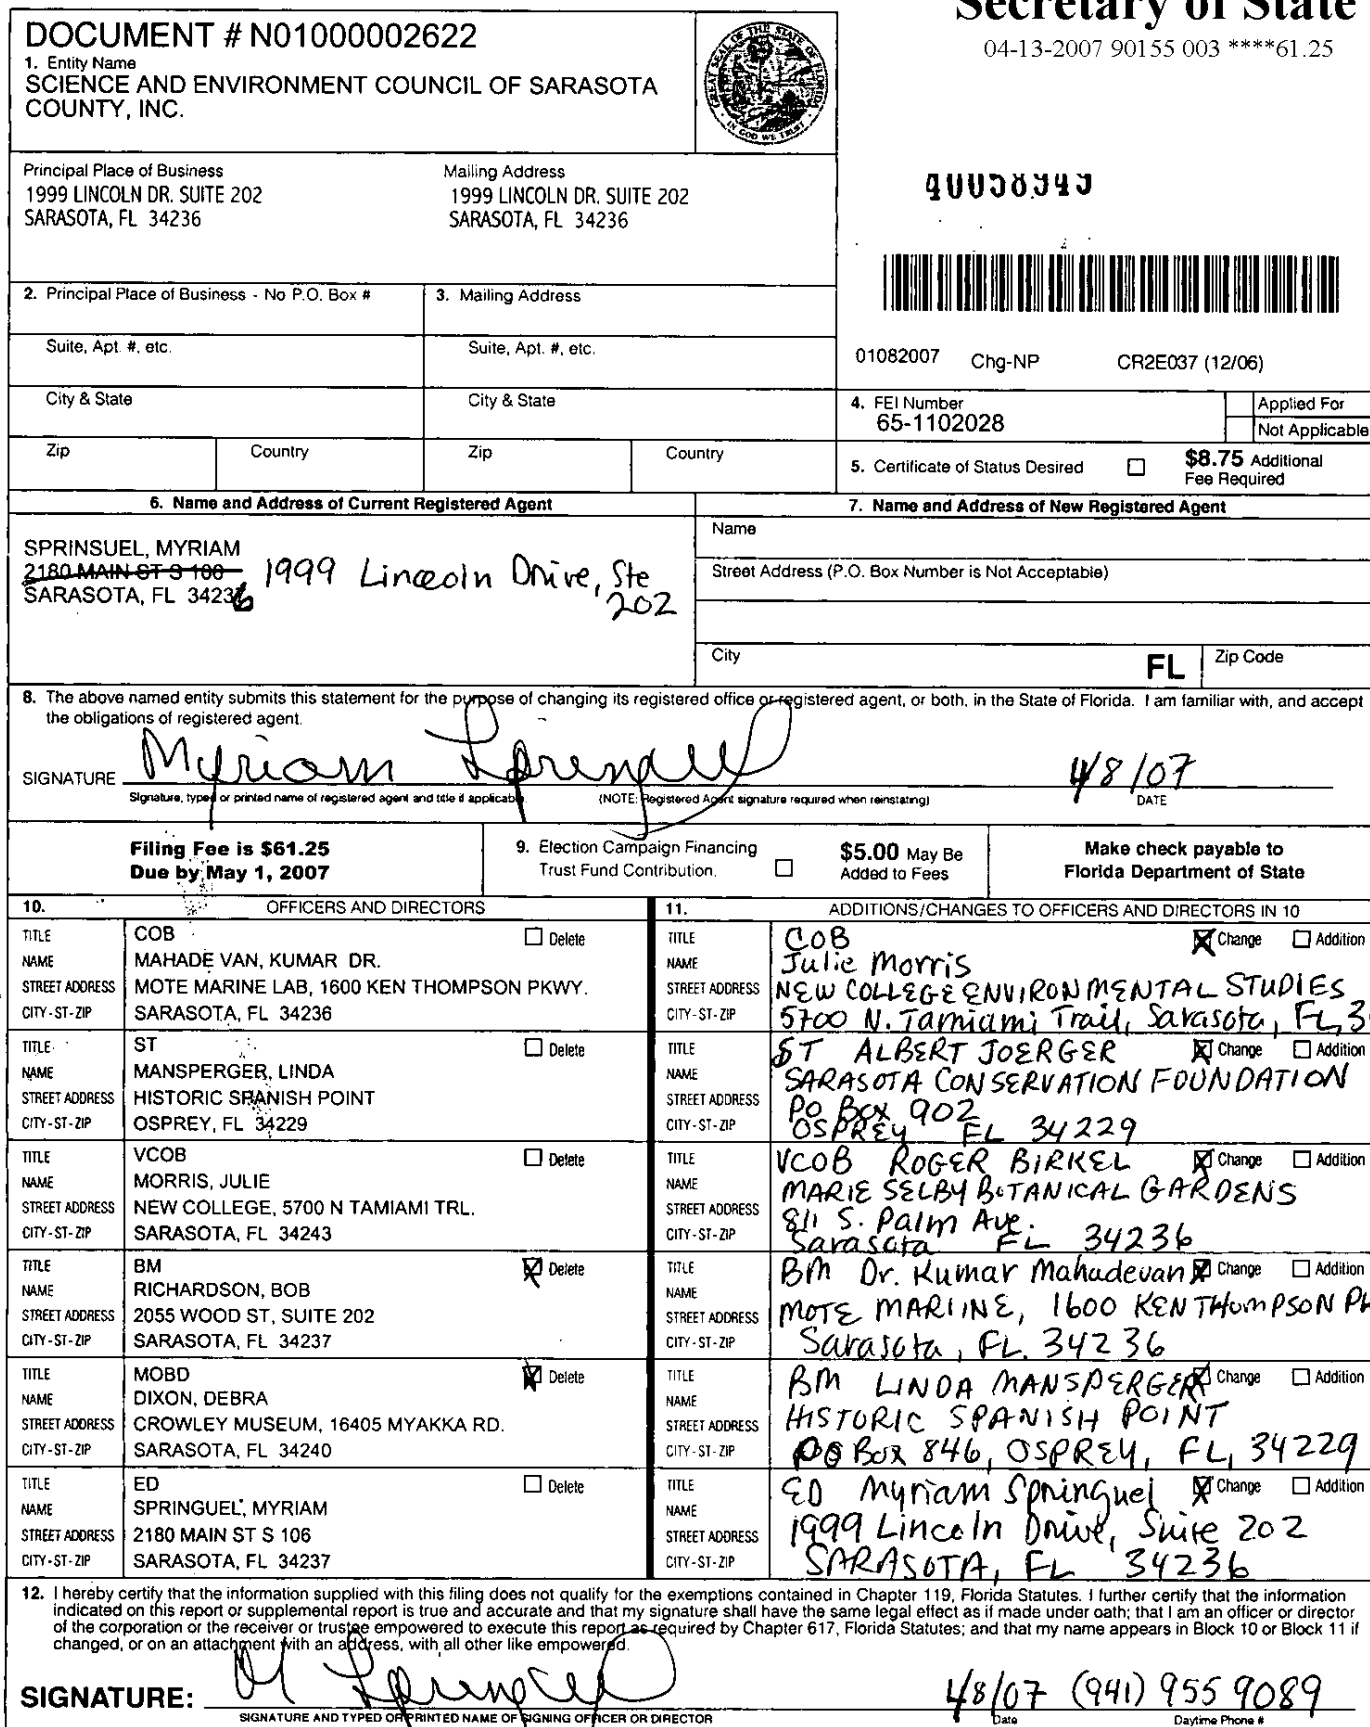 Secretary of State
04-13-2007 90155 003 ****61.25
DOCUMENT # N01000002622
1. Entity Name
SCIENCE AND ENVIRONMENT COUNCIL OF SARASOTA
COUNTY, INC.
GREAT SEAL OF THE STATE OF FLORIDA
IN GOD WE TRUST
Principal Place of Business
1999 LINCOLN DR. SUITE 202
SARASOTA, FL 34236
Mailing Address
1999 LINCOLN DR. SUITE 202
SARASOTA, FL 34236
2. Principal Place of Business - No P.O. Box #
3. Mailing Address
Suite, Apt. #, etc.
Suite, Apt. #, etc.
City & State
City & State
Zip
Country
Zip
Country
01082007 Chg-NP CR2E037 (12/06)
4. FEI Number
65-1102028
Applied For
Not Applicable
5. Certificate of Status Desired
$8.75 Additional
Fee Required
6. Name and Address of Current Registered Agent
SPRINSUEL, MYRIAM
2180 MAIN ST S 106
1999 Lincoln Drive, Ste
202
SARASOTA, FL 34236
7. Name and Address of New Registered Agent
Name
Street Address (P.O. Box Number is Not Acceptable)
City
FL
Zip Code
8. The above named entity submits this statement for the purpose of changing its registered office or registered agent, or both, in the State of Florida. I am familiar with, and accept
the obligations of registered agent.
SIGNATURE Myriam Springuel 4/8/07
Signature, typed or printed name of registered agent and title if applicable.
(NOTE: Registered Agent signature required when reinstating)
DATE
Filing Fee is $61.25
Due by May 1, 2007
9. Election Campaign Financing
Trust Fund Contribution.
$5.00 May Be
Added to Fees
Make check payable to
Florida Department of State
10. OFFICERS AND DIRECTORS
TITLE COB Delete
NAME MAHADE VAN, KUMAR DR.
STREET ADDRESS MOTE MARINE LAB, 1600 KEN THOMPSON PKWY.
CITY-ST-ZIP SARASOTA, FL 34236
TITLE ST Delete
NAME MANSPERGER, LINDA
STREET ADDRESS HISTORIC SPANISH POINT
CITY-ST-ZIP OSPREY, FL 34229
TITLE VCOB Delete
NAME MORRIS, JULIE
STREET ADDRESS NEW COLLEGE, 5700 N TAMIAMI TRL.
CITY-ST-ZIP SARASOTA, FL 34243
TITLE BM Delete
NAME RICHARDSON, BOB
STREET ADDRESS 2055 WOOD ST, SUITE 202
CITY-ST-ZIP SARASOTA, FL 34237
TITLE MOBD Delete
NAME DIXON, DEBRA
STREET ADDRESS CROWLEY MUSEUM, 16405 MYAKKA RD.
CITY-ST-ZIP SARASOTA, FL 34240
TITLE ED Delete
NAME SPRINGUEL, MYRIAM
STREET ADDRESS 2180 MAIN ST S 106
CITY-ST-ZIP SARASOTA, FL 34237
11. ADDITIONS/CHANGES TO OFFICERS AND DIRECTORS IN 10
TITLE COB Change Addition
NAME Julie Morris
STREET ADDRESS NEW COLLEGE ENVIRONMENTAL STUDIES
CITY-ST-ZIP 5700 N. Tamiami Trail, Sarasota, FL 3
TITLE ST ALBERT JOERGER Change Addition
NAME SARASOTA CONSERVATION FOUNDATION
STREET ADDRESS PO Box 902
CITY-ST-ZIP OSPREY FL 34229
TITLE VCOB ROGER BIRKEL Change Addition
NAME MARIE SELBY BOTANICAL GARDENS
STREET ADDRESS 811 S. Palm Ave.
CITY-ST-ZIP Sarasota FL 34236
TITLE BM Dr. Kumar Mahadevan Change Addition
NAME
STREET ADDRESS MOTE MARIINE, 1600 KEN THOMPSON PK
CITY-ST-ZIP Sarasota, FL. 34236
TITLE BM LINDA MANSPERGER Change Addition
NAME
STREET ADDRESS HISTORIC SPANISH POINT
CITY-ST-ZIP PO Box 846, OSPREY, FL, 34229
TITLE ED Myriam Springuel Change Addition
NAME
STREET ADDRESS 1999 Lincoln Drive, Suite 202
CITY-ST-ZIP SARASOTA, FL 34236
12. I hereby certify that the information supplied with this filing does not qualify for the exemptions contained in Chapter 119, Florida Statutes. I further certify that the information
indicated on this report or supplemental report is true and accurate and that my signature shall have the same legal effect as if made under oath; that I am an officer or director
of the corporation or the receiver or trustee empowered to execute this report as required by Chapter 617, Florida Statutes; and that my name appears in Block 10 or Block 11 if
changed, or on an attachment with an address, with all other like empowered.
SIGNATURE: M Springuel 4/8/07 (941) 955 9089
SIGNATURE AND TYPED OR PRINTED NAME OF SIGNING OFFICER OR DIRECTOR
Date
Daytime Phone #